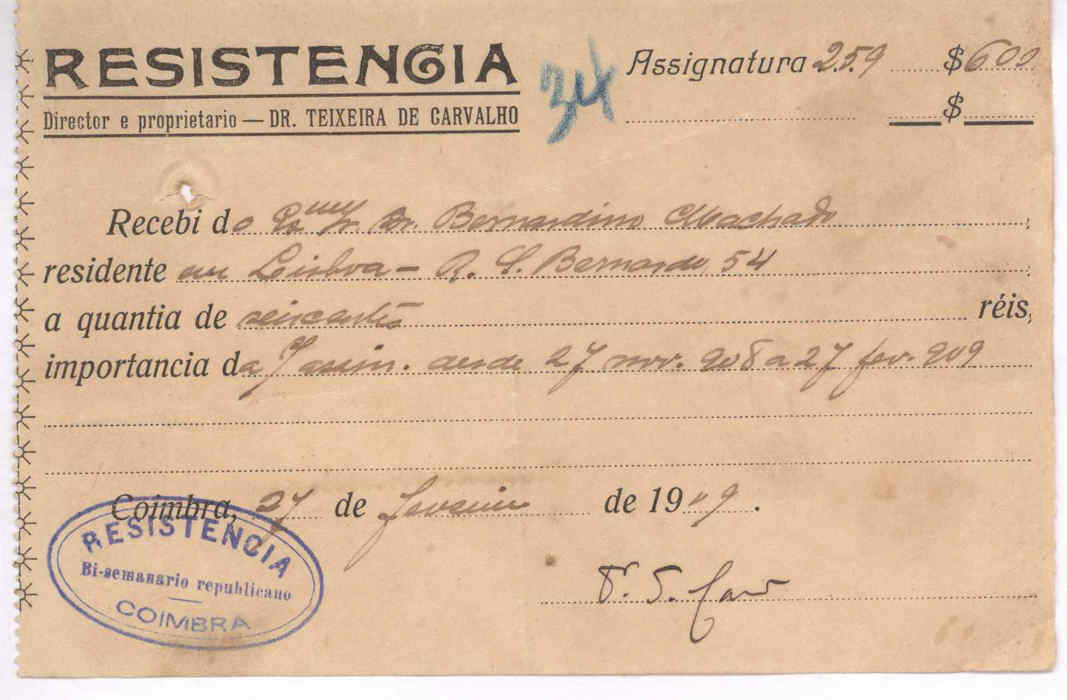 RESISTENCIA
Director e proprietario — DR. TEIXEIRA DE CARVALHO
34
Assignatura 259 $600
$
Recebi do Exmo Sr. Dr. Bernardino Machado,
residente em Lisboa – R. S. Bernardo, 54
a quantia de seiscentos réis,
importancia da assin. desde 27 nov. 908 a 27 fev. 909
Coimbra, 27 de fevereiro de 1909.
RESISTENCIA
Bi-semanario republicano
COIMBRA